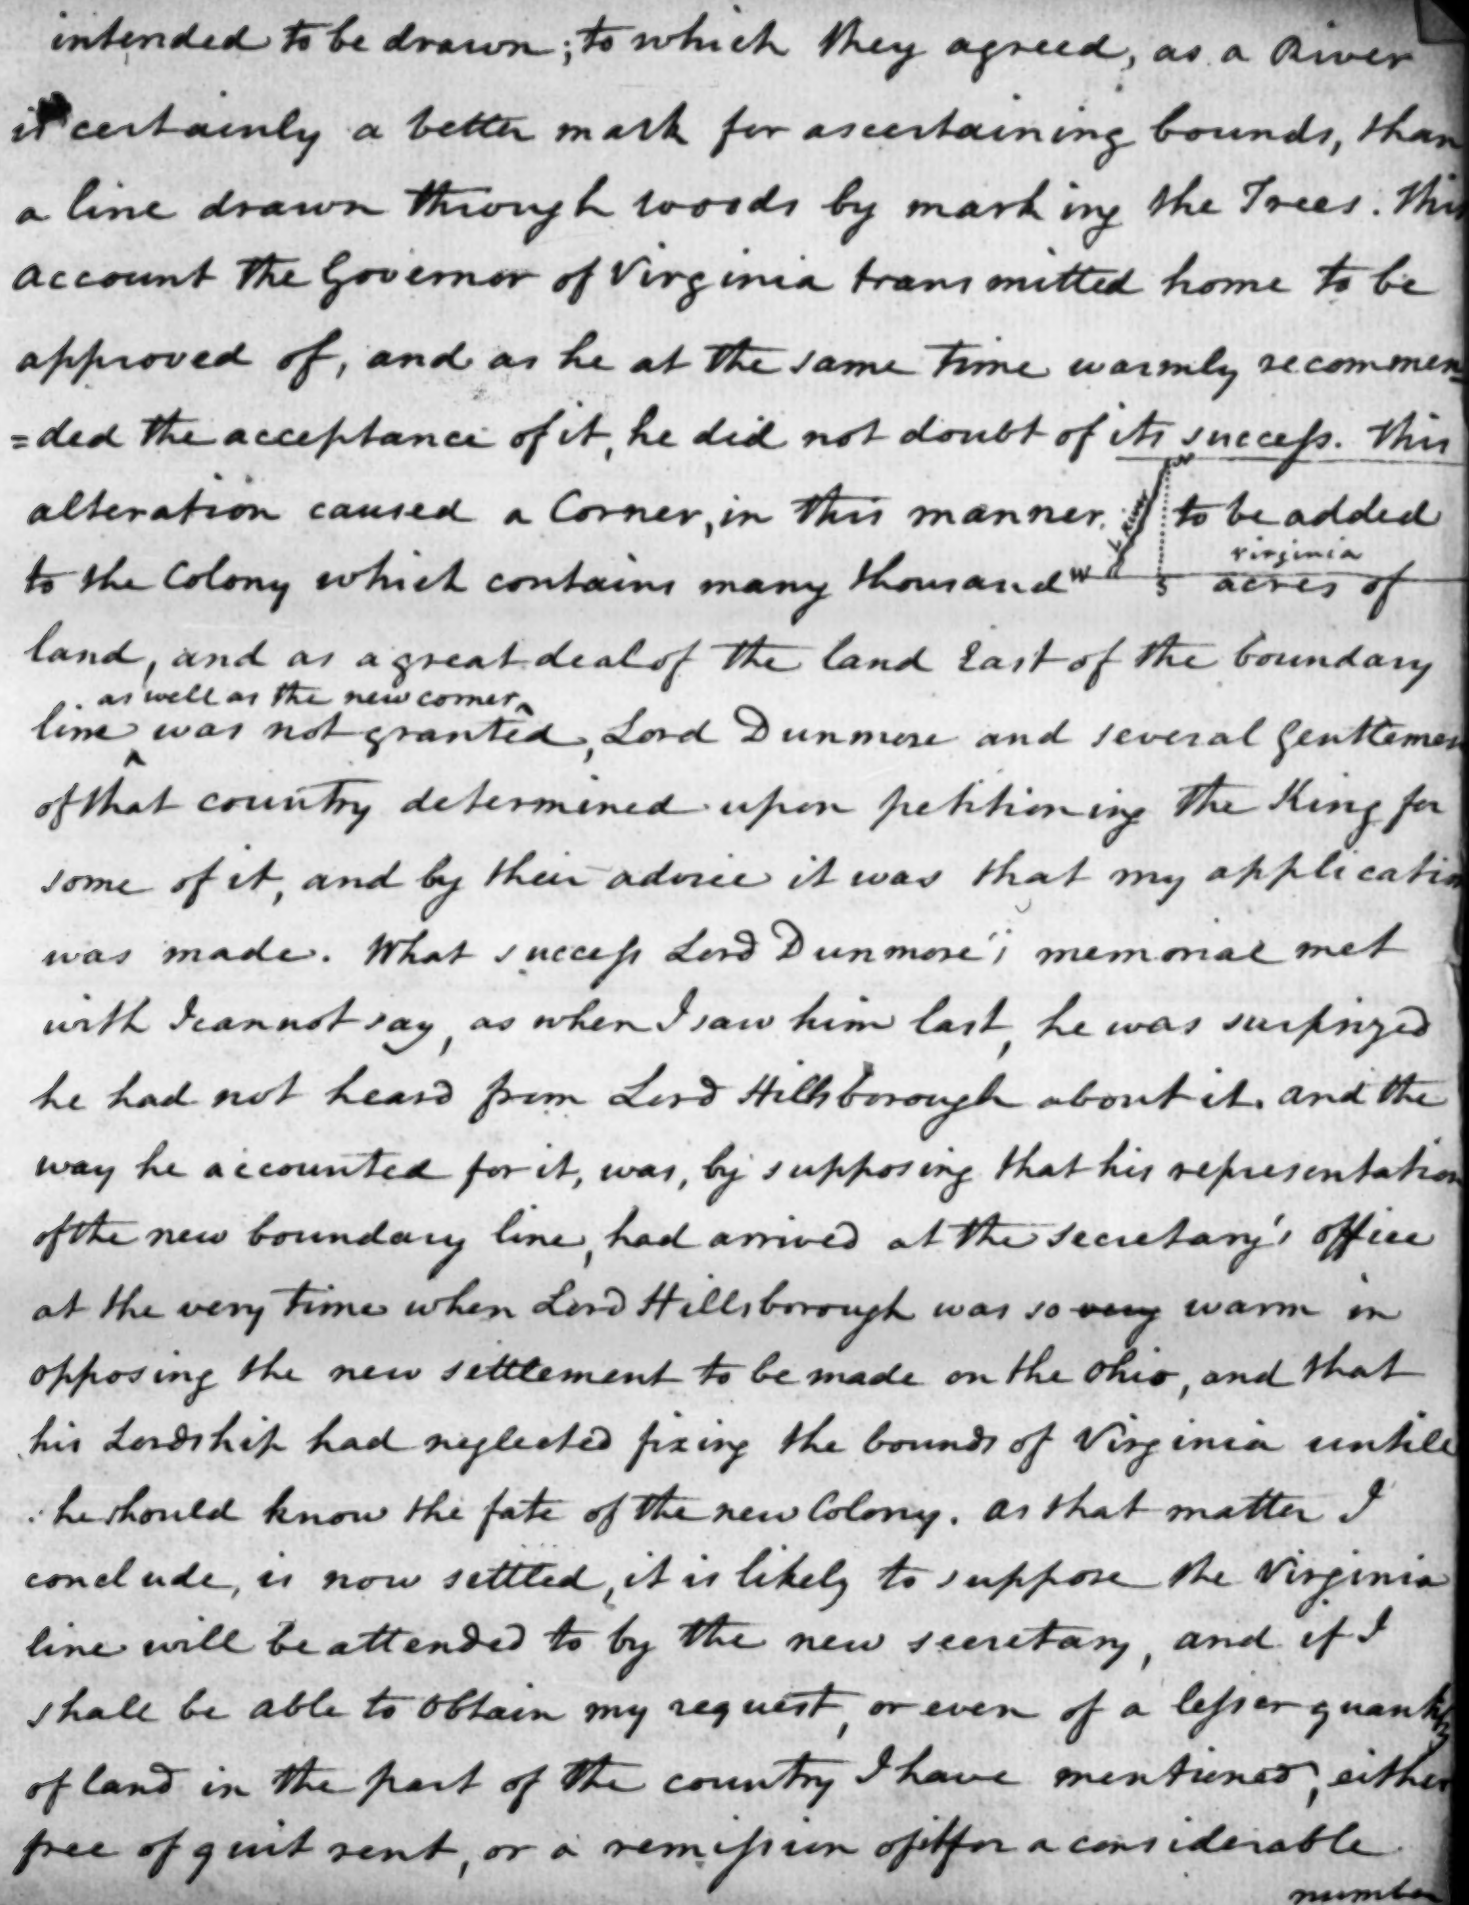 intended to be drawn; to which they agreed, as a River
is certainly a better mark for ascertaining bounds, than
a line drawn through woods by marking the Trees. This
account the Governor of Virginia transmitted home to be
approved of, and as he at the same time warmly recommen=
=ded the acceptance of it, he did not doubt of its success. This
alteration caused a Corner, in this manner. N River to be added
Virginia
to the Colony which contains many thousand W S acres of
land, and as a great deal of the land East of the boundary
as well as the new corner
line was not granted, Lord Dunmore and several Gentlemen
of that country determined upon petitioning the King for
some of it, and by their advice it was that my application
was made. What success Lord Dunmore's memorial met
with I cannot say, as when I saw him last, he was surprized
he had not heard from Lord Hillsborough about it. and the
way he accounted for it, was, by supposing that his representation
of the new boundary line, had arrived at the secretary's office
at the very time when Lord Hillsborough was so very warm in
opposing the new settlement to be made on the Ohio, and that
his Lordship had neglected fixing the bounds of Virginia untill
he should know the fate of the new Colony. as that matter I
conclude, is now settled, it is likely to suppose the Virginia
line will be attended to by the new secretary, and if I
shall be able to obtain my request, or even of a lesser quantity
of land in the part of the country I have mentioned, either
free of quit rent, or a remission of it for a considerable
number